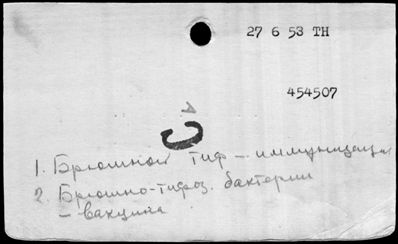 27 6 53 TH
454507
1. Брюшной тиф - иммунизация
2. Брюшно-тифоз. бактерии
- вакцина